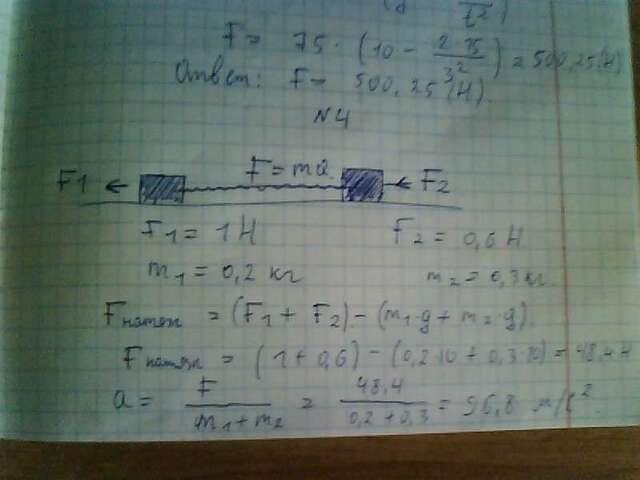 t²)
F = 75 · (10 - 2·75 / 3²) = 500,25 (Н)
Ответ: F = 500,25 (Н).
№4
F = ma
F1 ← ← F2
F1 = 1 Н F2 = 0,6 Н
m1 = 0,2 кг m2 = 0,3 кг
Fнатяж = (F1 + F2) - (m1·g + m2·g).
Fнатяж = (1 + 0,6) - (0,2·10 + 0,3·10) = 48,4 Н
a = F / m1 + m2 = 48,4 / 0,2 + 0,3 = 96,8 м/с².